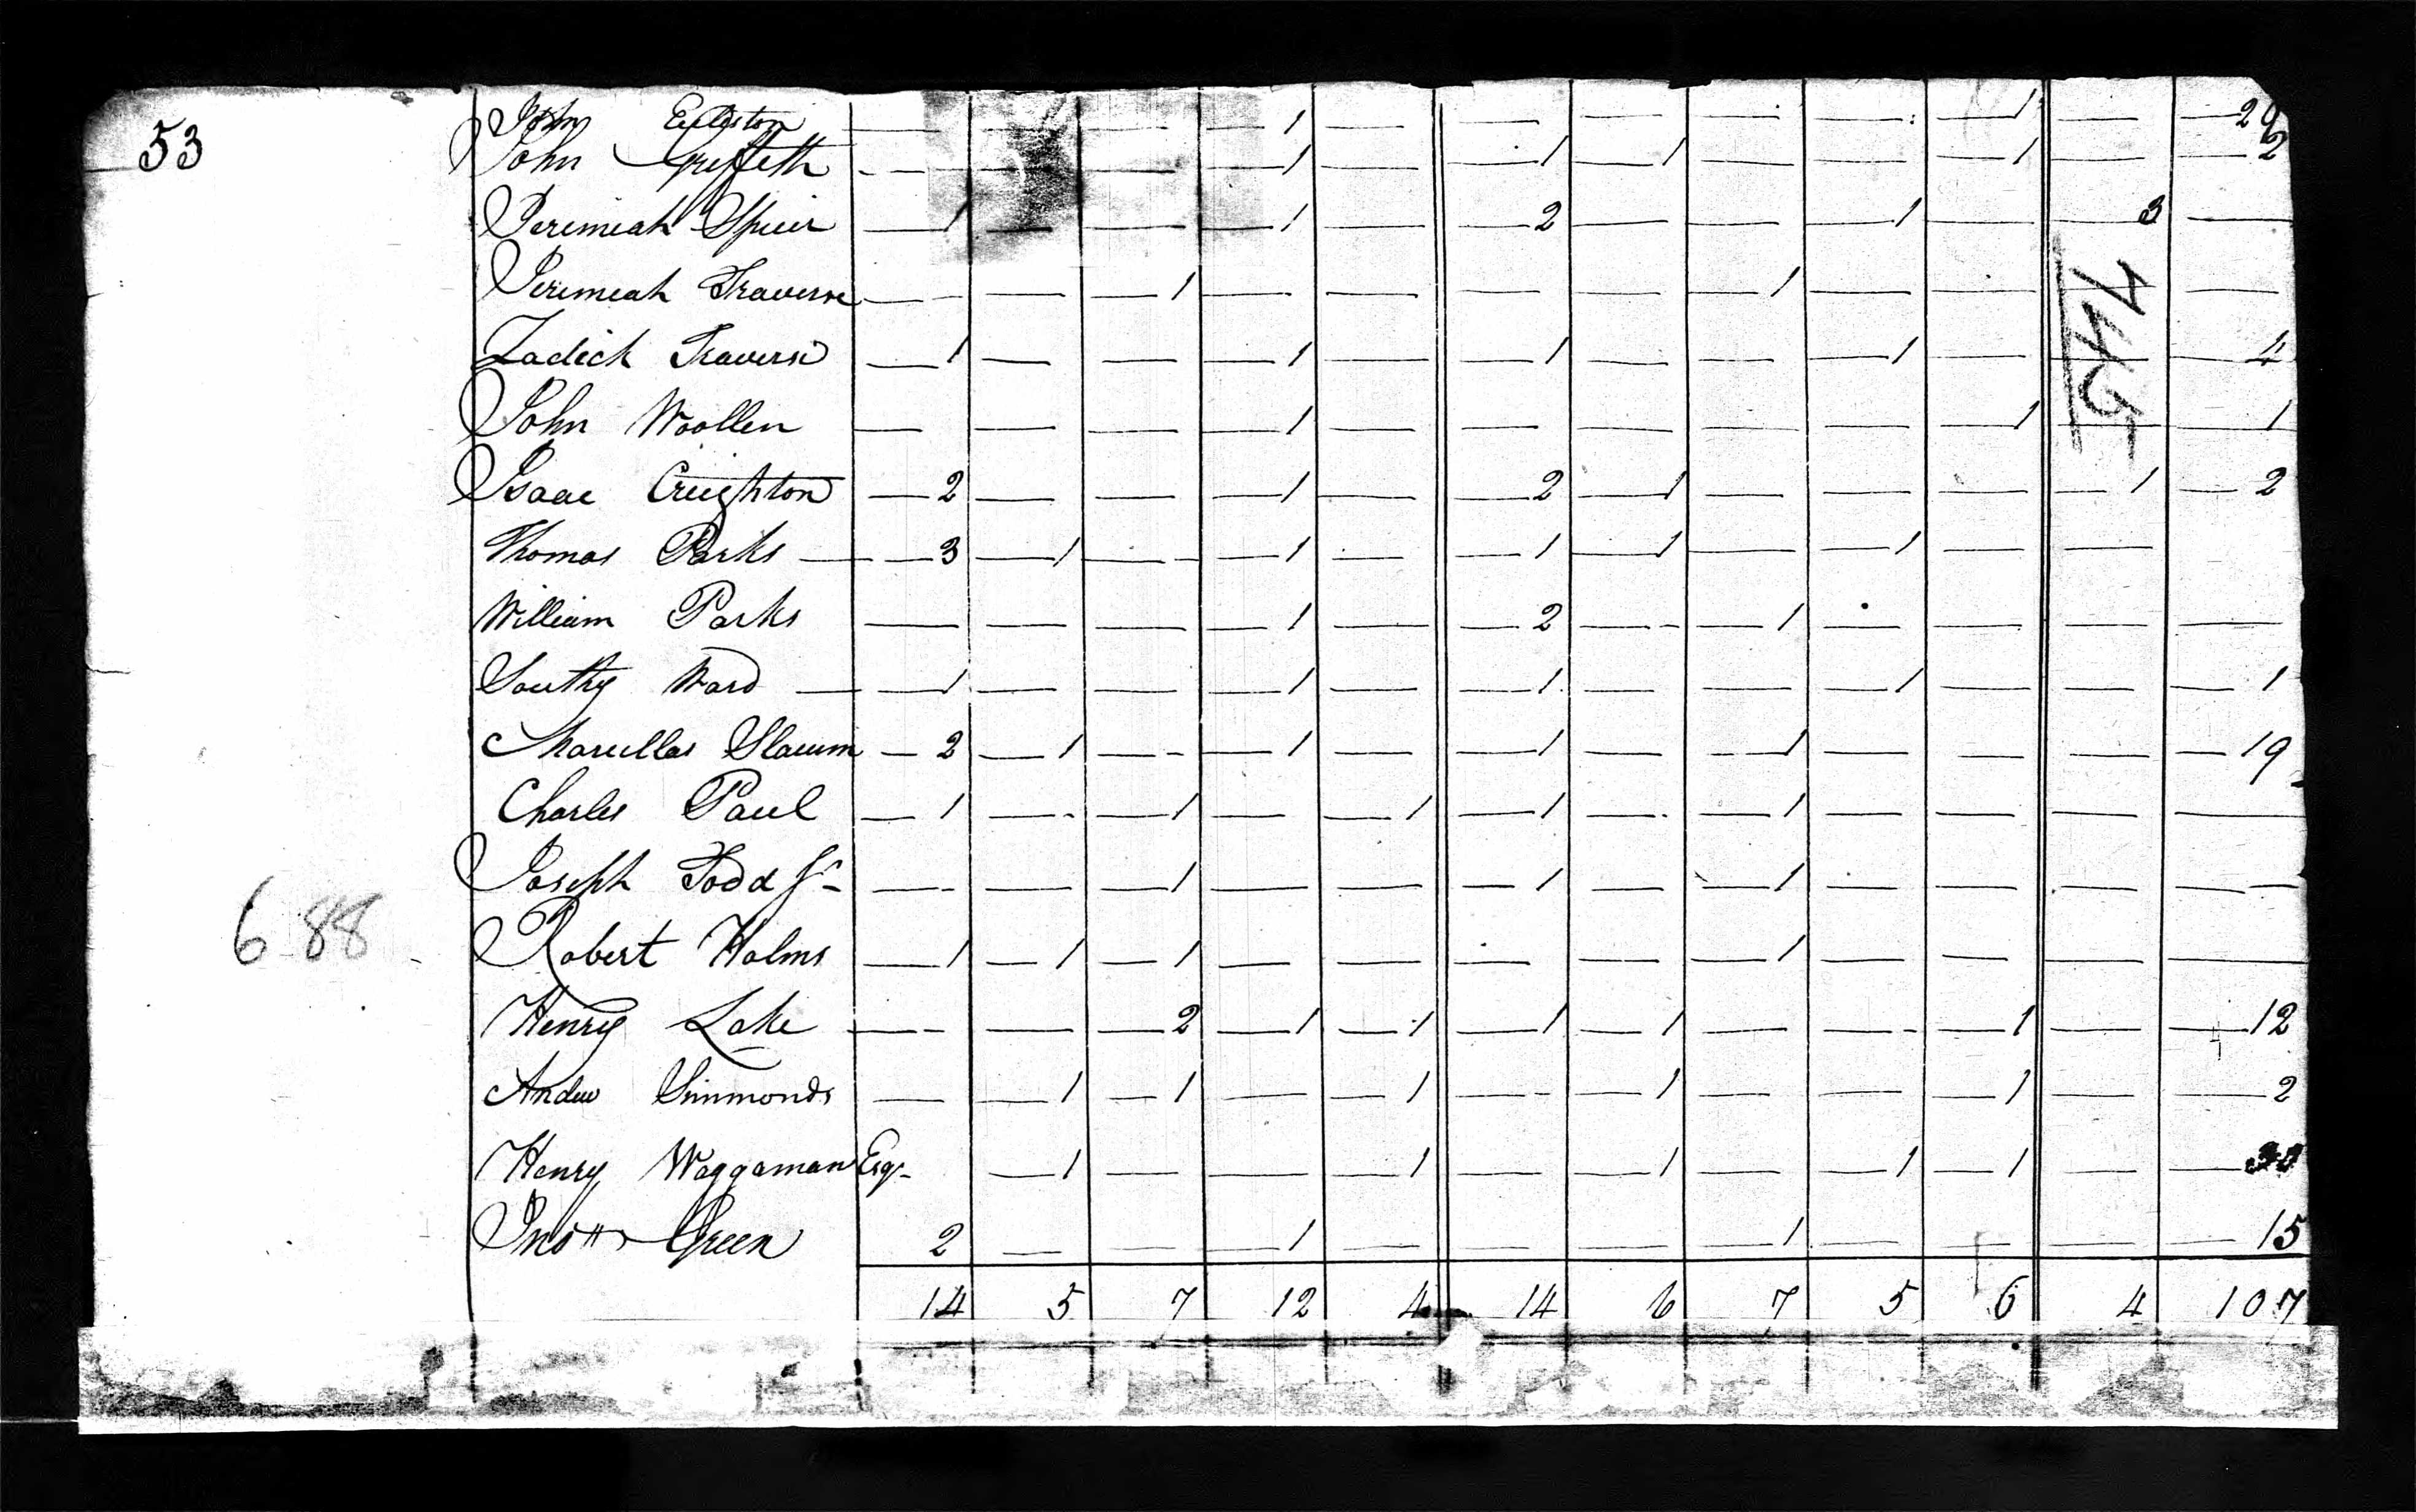 53
John Eccleston — — — 1 — — — — — 1 — 29
John Griffeth — — — 1 — 1 1 — — 1 — 2
Jeremiah Spicer 1 — — 1 — 2 — — 1 — 3 —
Jeremiah Traverse — — 1 — — — — 1 — — — —
Zadick Traverse 1 — — 1 — 1 — — 1 — — 4
John Woollen — — — 1 — — — — — 1 — 1
Isaac Creighton 2 — — 1 — 2 1 — — — 1 2
Thomas Parks 3 1 — 1 — 1 1 — 1 — —
William Parks — — — 1 — 2 — 1 — — — —
Southy Ward 1 — — 1 — 1 — — 1 — — 1
Marcellas Slacum 2 1 — 1 — 1 — 1 — — — 19
Charles Paul 1 — 1 — 1 1 — 1 — — — —
Joseph Todd — — 1 — — 1 — 1 — — — —
Robert Holms 1 1 1 — — — — 1 — — — —
Henry Lake — — 2 1 1 1 1 — — 1 — 12
Andw Simmonds — 1 1 — 1 — 1 — — 1 — 2
Henry Waggaman Esqr 1 — — 1 — 1 — 1 1 —
Green 2 — — 1 — — — 1 — — — 15
14 5 7 12 4 14 6 7 5 6 4 107
688
745